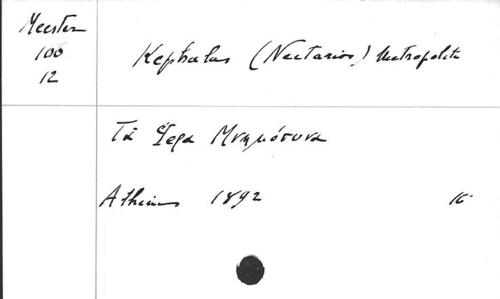 Meester
100
12
Kephalas (Nectarios) Metropolite
Τὰ Ἱερα Μνημόσυνα
Athens 1892 16